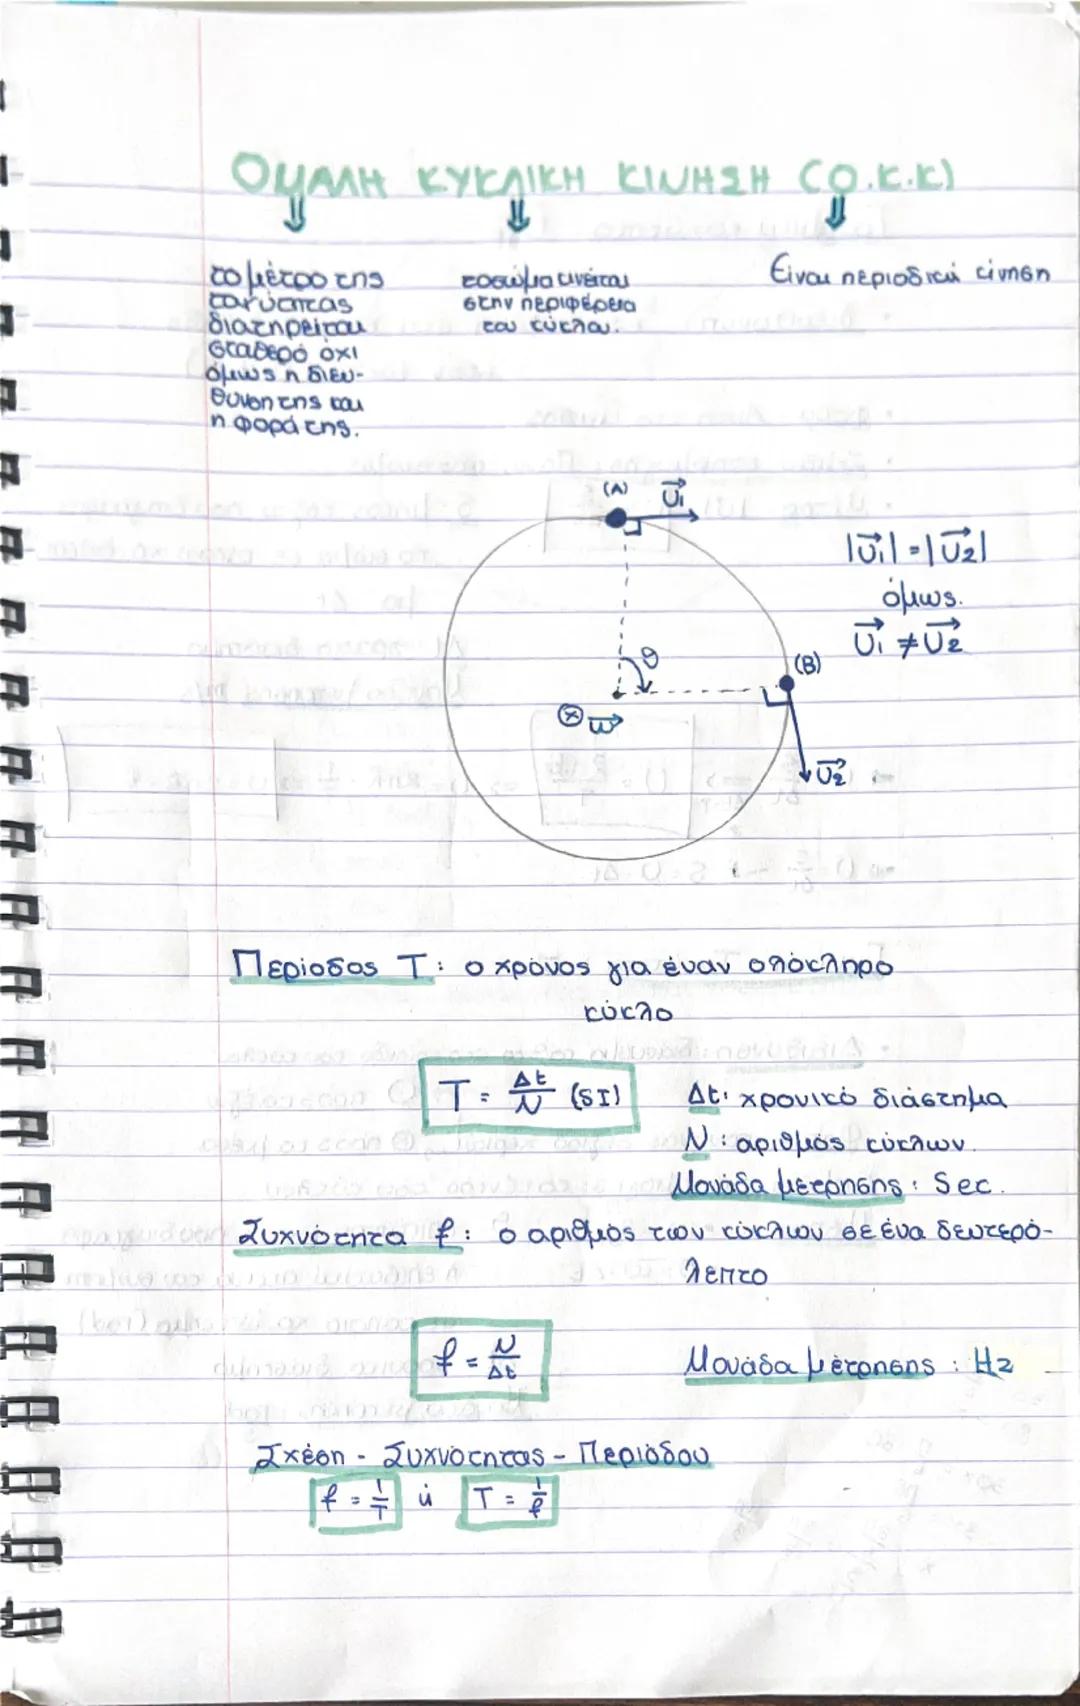 ΟΜΑΛΗ ΚΥΚΛΙΚΗ ΚΙΝΗΣΗ (Ο.Κ.Κ)
το μέτρο της
ταχύτητας
διατηρείται
σταθερό όχι
όμως η διεύ-
θυνση της και
η φορά της.
το σώμα κινείται
στην περιφέρεια
του κύκλου.
Είναι περιοδική κίνηση
(A)
υ₁
|υ₁| = |υ₂|
όμως.
υ₁ ≠ υ₂
θ
(B)
⊗ ω
υ₂
Περίοδος T: ο χρόνος για έναν ολόκληρο
κύκλο
T = Δt/N (SI)
Δt: χρονικό διάστημα
N: αριθμός κύκλων.
Μονάδα μέτρησης: Sec.
Συχνότητα f: ο αριθμός των κύκλων σε ένα δευτερό-
λεπτο
f = N/Δt
Μονάδα μέτρησης: Hz
Σχέση - Συχνότητας - Περιόδου
f = 1/T ή T = 1/f